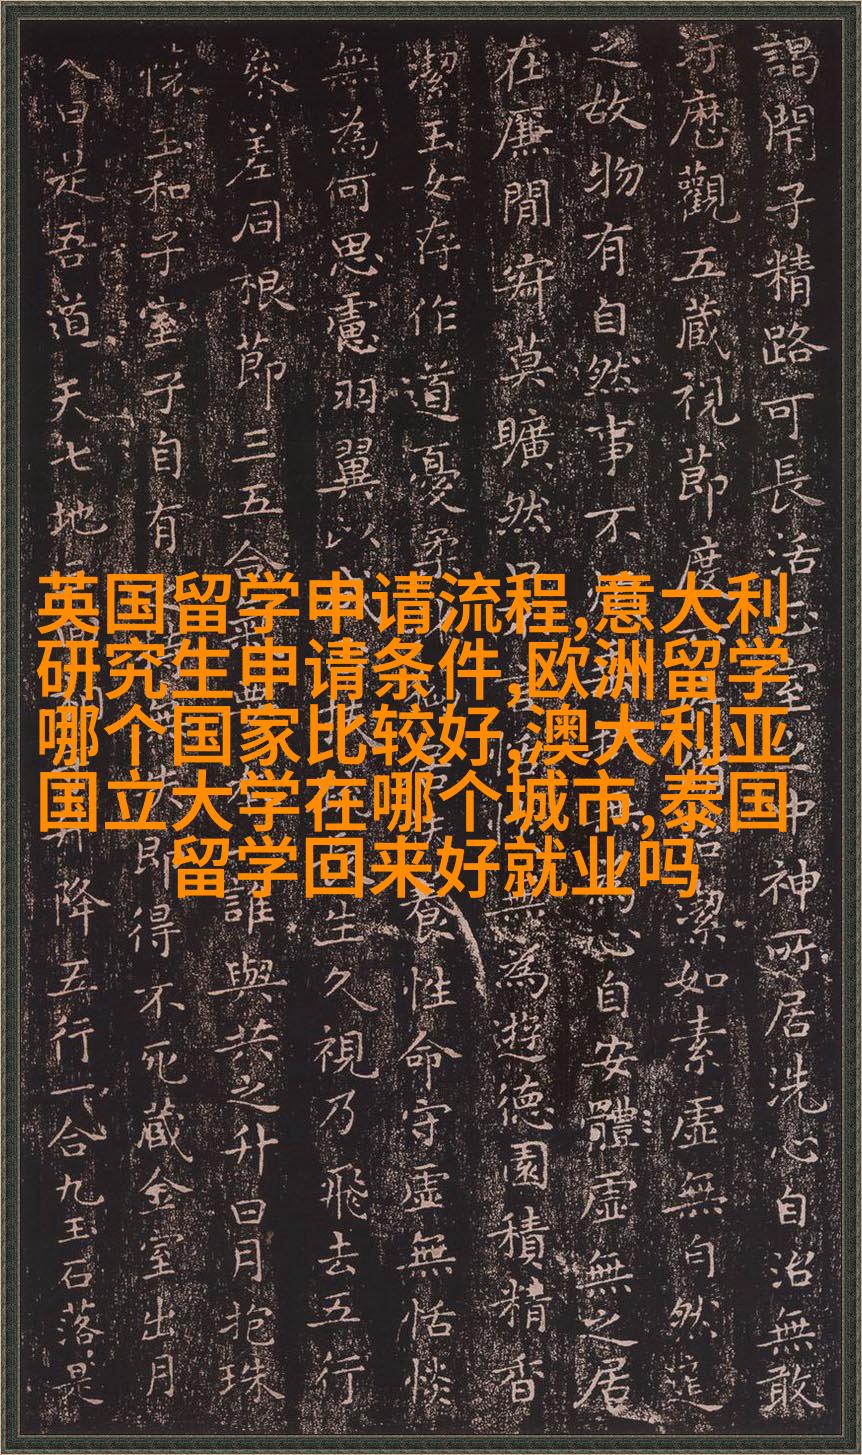 謁閈子精路可長活正室之中神所居洗心自治無敢
歷觀五藏視節度
潔如素虛無自然
之故物有自然事不
心自安體虛無之居
在廉閒寂莫曠然
無為遊德園積精香
潔玉女存作道憂柔
養性命守虛無恬惔
無為何思慮羽翼以
生久視乃飛去五行
參差同根節三五合
誰與共之升日月抱珠
懷玉和子室子自有
得不死藏金室出月
入日是吾道天七地
升降五行一合九玉石落落是
英国留学申请流程,意大利
研究生申请条件,欧洲留学
哪个国家比较好,澳大利亚
国立大学在哪个城市,泰国
留学回来好就业吗